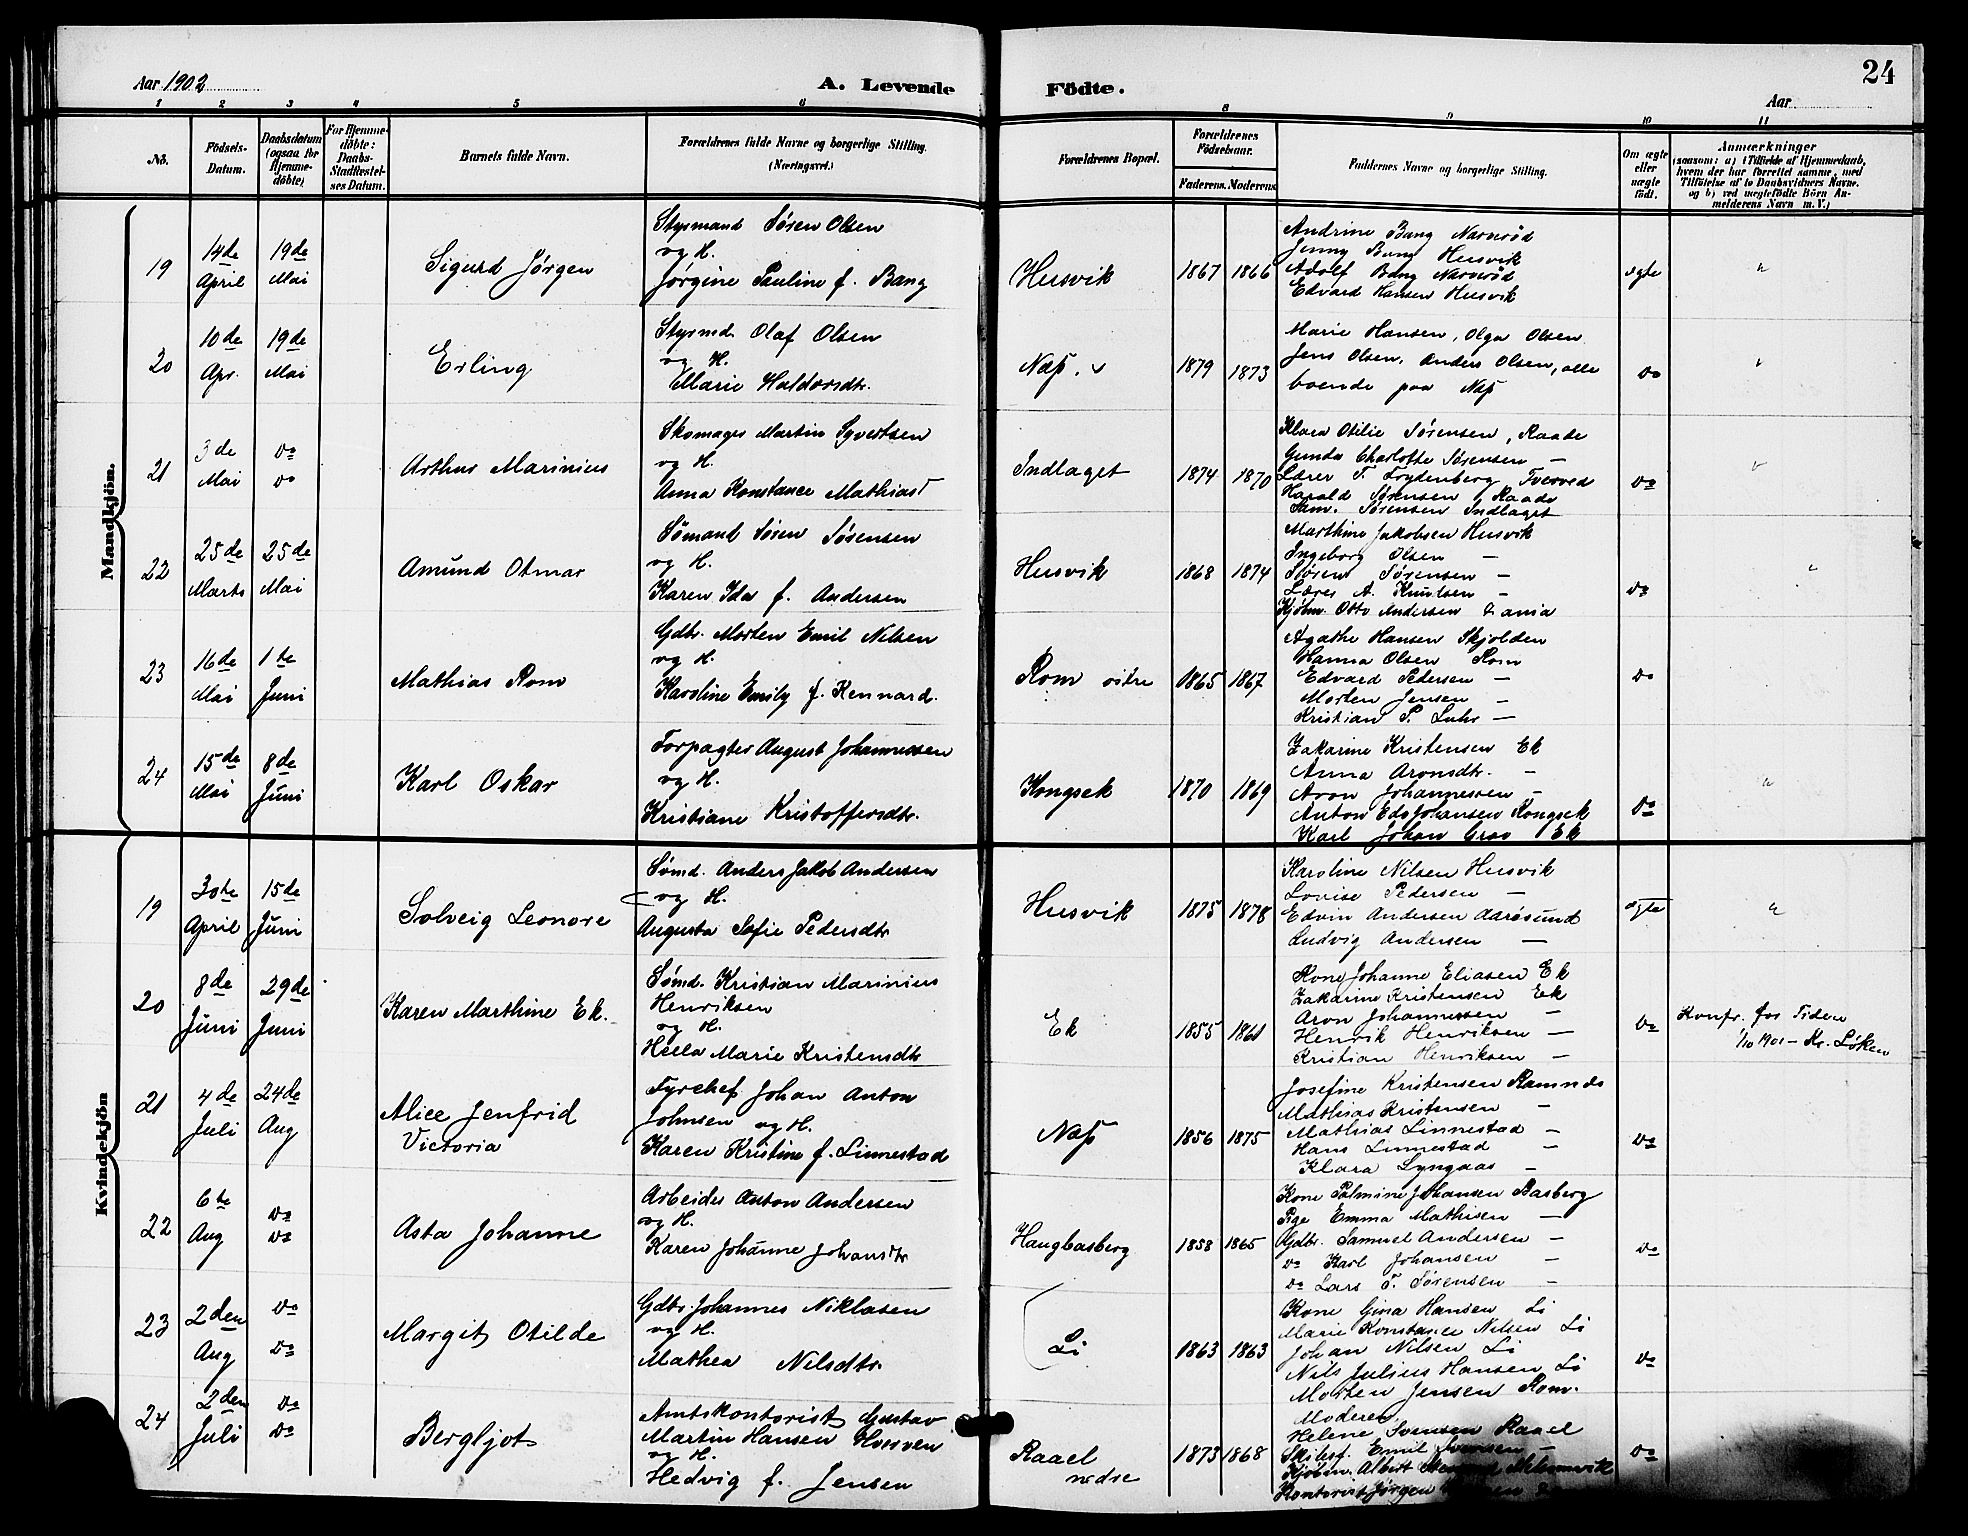 Aar 1902
A. Levende
Födte.
Aar
24
1 2 3 4 5 6 8 9 10 11
No.
Födsels-
Datum.
Daabsdatum
(ogsaa for
Hjemme-
døbte)
For Hjemme-
döbte:
Daabs-
Stadfæstel-
ses Datum.
Barnets fulde Navn.
Forældrenes fulde Navne og borgerlige Stilling.
(Næringsvei.)
Forældrenes Bopæl.
Forældrenes
Födselsaar.
Faderens. Moderens
Faddernes Navne og borgerlige Stilling.
Om ægte
eller
uægte
födt.
Anmærkninger
(saasom: a) i Tilfælde af Hjemmedaab,
hvem der har forrettet samme, med
Tilföielse af to Daabsvidners Navne.
og b) ved uægtefödte Börn An-
melderens Navn m. V.)
Mandkjön.
19
14de
April
19de
Mai
Sigurd Jørgen
Styrmand Søren Olsen
og H.
Jørgine Pauline f. Bang
Husvik
1867 1866
Andrine Bang Narverød
Jenny Bang Husvik
Adolf Bang Narverød
Edvard Hansen Husvik
ægte
20
10de
Apr.
19de
Mai
Erling
Styrmd. Olaf Olsen
og H.
Marie Haldorsdtr.
Næss. v
1879 1873
Marie Hansen, Olga Olsen
Jens Olsen, Anders Olsen, alle
boende paa Næss
do
21
3de
Mai
do
do
Arthur Marinius
Skomager Martin Syvertsen
og H.
Anna Konstance Mathiasd
Indlaget
1874 1870
Klara Otilie Sørensen, Raade
Gunda Charlotte Sørensen —
Lærer T. Frydenberg Tverved
Harald Sørensen Raade
Sam. Sørensen Indlaget
do
22
25de
Marts
25de
Mai
Amund Otmar
Sömand Søren Sørensen
og H.
Karen Ida f. Andersen
Husvik
1868 1874
Marthine Jakobsen Husvik
Ingeborg Olsen —
Søren Sørensen —
Lærer A. Knutsen —
Kjøbm. Otto Andersen
do
23
16de
Mai
1te
Juni
Mathias Rom
Gdbr. Morten Emil Nilsen
og H.
Karoline Emily f. Kennard.
Rom østre
1865 1867
Agathe Hansen Skjolden
Hanna Olsen Rom
Edvard Pedersen —
Morten Jensen —
Kristian P. Luhr —
do
24
15de
Mai
8de
Juni
Karl Oskar
Forpagter August Johannessen
og H.
Kristiane Kristoffersdtr.
Kongsek
1870 1869
Zakarine Kristensen Ek
Anna Aronsdtr. —
Aron Johannessen —
Anton Edv Johansen Kongsek
Karl Johan Grav Ek
do
Kvindekjön
19
30te
April
15de
Juni
Solveig Leonore
Sømd. Anders Jakob Andersen
og H.
Augusta Sofie Pedersdtr
Husvik
1875 1878
Karoline Nilsen Husvik
Lovise Pedersen —
Edvin Andersen Aarøsund
Ludvig Andersen —
ægte
20
8de
Juni
29de
Juni
Karen Marthine Ek.
Sømd. Kristian Marinius
Henriksen
og H.
Helle Marie Kristensdtr
Ek
1855 1861
Kone Johanne Eliasen Ek
Zakarine Kristensen Ek
Aron Johannessen —
Henrik Henriksen —
Kristian Henriksen —
do
Konfr. før Tiden
1/10 1901 — Kr. Løken
21
4de
Juli
24de
Aug
Alice Jenfrid
Victoria
Fyrchef Johan Anton
Johnsen og H.
Karen Kristine f. Linnestad
Næss
1856 1875
Josefine Kristensen Ramnes
Mathias Kristensen —
Mathias Linnestad —
Hans Linnestad —
Klara Lyngaas —
do
22
6te
Aug
do
do
Asta Johanne
Arbeider Anton Andersen
og H.
Karen Johanne Johansdtr
Haugbasberg
1858 1865
Kone Palmine Johansen Basberg
Pige Emma Mathisen —
Gdbr. Samuel Andersen —
do Karl Johansen —
do Lars T. Sørensen —
do
23
2den
Aug
do
do
Margit Otilde
Gdbr. Johannes Niklasen
og H.
Mathea Nilsdtr.
Li
1863 1863
Kone Gina Hansen Li
Marie Konstance Nilsen Li
Johan Nilsen Li
Nils Julius Hansen Li
Morten Jensen Rom.
do
24
2den
Juli
do
do
Bergljot
Amtskontorist Gustav
Martin Hansen Hverven
og H.
Hedvig f. Jensen
Raael
nedre
1873 1868
Moderen
Helene Svensen Raael
Skibsf. Emil Svensen —
Kjøbm. Albert
Kontorist Jørgen
do